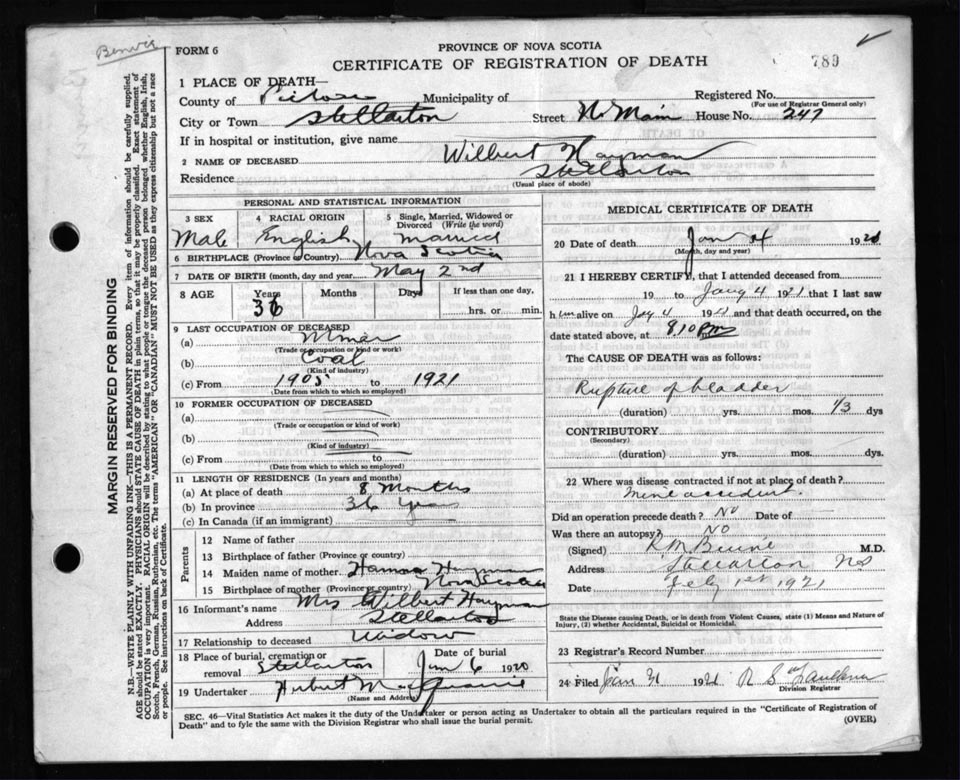 Benvie
FORM 6
PROVINCE OF NOVA SCOTIA
CERTIFICATE OF REGISTRATION OF DEATH
789
1 PLACE OF DEATH—
County of Pictou Municipality of Registered No.
(For use of Registrar General only)
City or Town Stellarton Street No Main House No. 247
If in hospital or institution, give name
2 NAME OF DECEASED Wilbert Hayman
Residence Stellarton
(Usual place of abode)
PERSONAL AND STATISTICAL INFORMATION
3 SEX 4 RACIAL ORIGIN 5 Single, Married, Widowed or Divorced (Write the word)
Male English Married
6 BIRTHPLACE (Province or Country) Nova Scotia
7 DATE OF BIRTH (month, day and year) May 2nd
8 AGE Years Months Days If less than one day,
36 hrs. or min.
9 LAST OCCUPATION OF DECEASED
(a) Miner
(Trade or occupation or kind of work)
(b) Coal
(Kind of industry)
(c) From 1905 to 1921
(Date from which to which so employed)
10 FORMER OCCUPATION OF DECEASED
(a)
(Trade or occupation or kind of work)
(b)
(Kind of industry)
(c) From to
(Date from which to which so employed)
11 LENGTH OF RESIDENCE (In years and months)
(a) At place of death 8 Months
(b) In province 36 years
(c) In Canada (if an immigrant)
Parents
12 Name of father
13 Birthplace of father (Province or country)
14 Maiden name of mother Hayman
15 Birthplace of mother (Province or country) Nova Scotia
16 Informant's name Mrs Wilbert Hayman
Address Stellarton
17 Relationship to deceased Widow
18 Place of burial, cremation or removal Stellarton Date of burial Jan 6 1920
19 Undertaker
(Name and Address)
MEDICAL CERTIFICATE OF DEATH
20 Date of death Jan 4 192
(Month, day and year)
21 I HEREBY CERTIFY, that I attended deceased from
19 to Jany 4 1921 that I last saw
him alive on Jany 4 1921 and that death occurred, on the
date stated above, at 8 10 pm
The CAUSE OF DEATH was as follows:
Rupture of bladder
(duration) yrs. mos. 1/3 dys
CONTRIBUTORY
(Secondary)
(duration) yrs. mos. dys.
22 Where was disease contracted if not at place of death?
Mine accident.
Did an operation precede death? No Date of
Was there an autopsy? No
(Signed) M.D.
Address Stellarton NS
Date Feby 1st 1921
State the Disease causing Death, or in death from Violent Causes, state (1) Means and Nature of Injury, (2) whether Accidental, Suicidal or Homicidal.
23 Registrar's Record Number
24 Filed Jan 31 1921 Faulkner
Division Registrar
SEC. 46—Vital Statistics Act makes it the duty of the Undertaker or person acting as Undertaker to obtain all the particulars required in the "Certificate of Registration of Death" and to fyle the same with the Division Registrar who shall issue the burial permit.
(OVER)
MARGIN RESERVED FOR BINDING
N.B.—WRITE PLAINLY WITH UNFADING INK—THIS IS A PERMANENT RECORD. Every item of information should be carefully supplied.
AGE should be stated EXACTLY. PHYSICIANS should STATE CAUSE OF DEATH in plain terms, so that it may be properly classified. Exact statement of
OCCUPATION is very important. RACIAL ORIGIN will be described by stating to what people or tongue the deceased person belonged whether English, Irish,
Scotch, French, German, Russian, Ruthenian, etc. The terms "AMERICAN" OR "CANADIAN" MUST NOT BE USED as they express citizenship but not a race
or people. See instructions on back of Certificate.